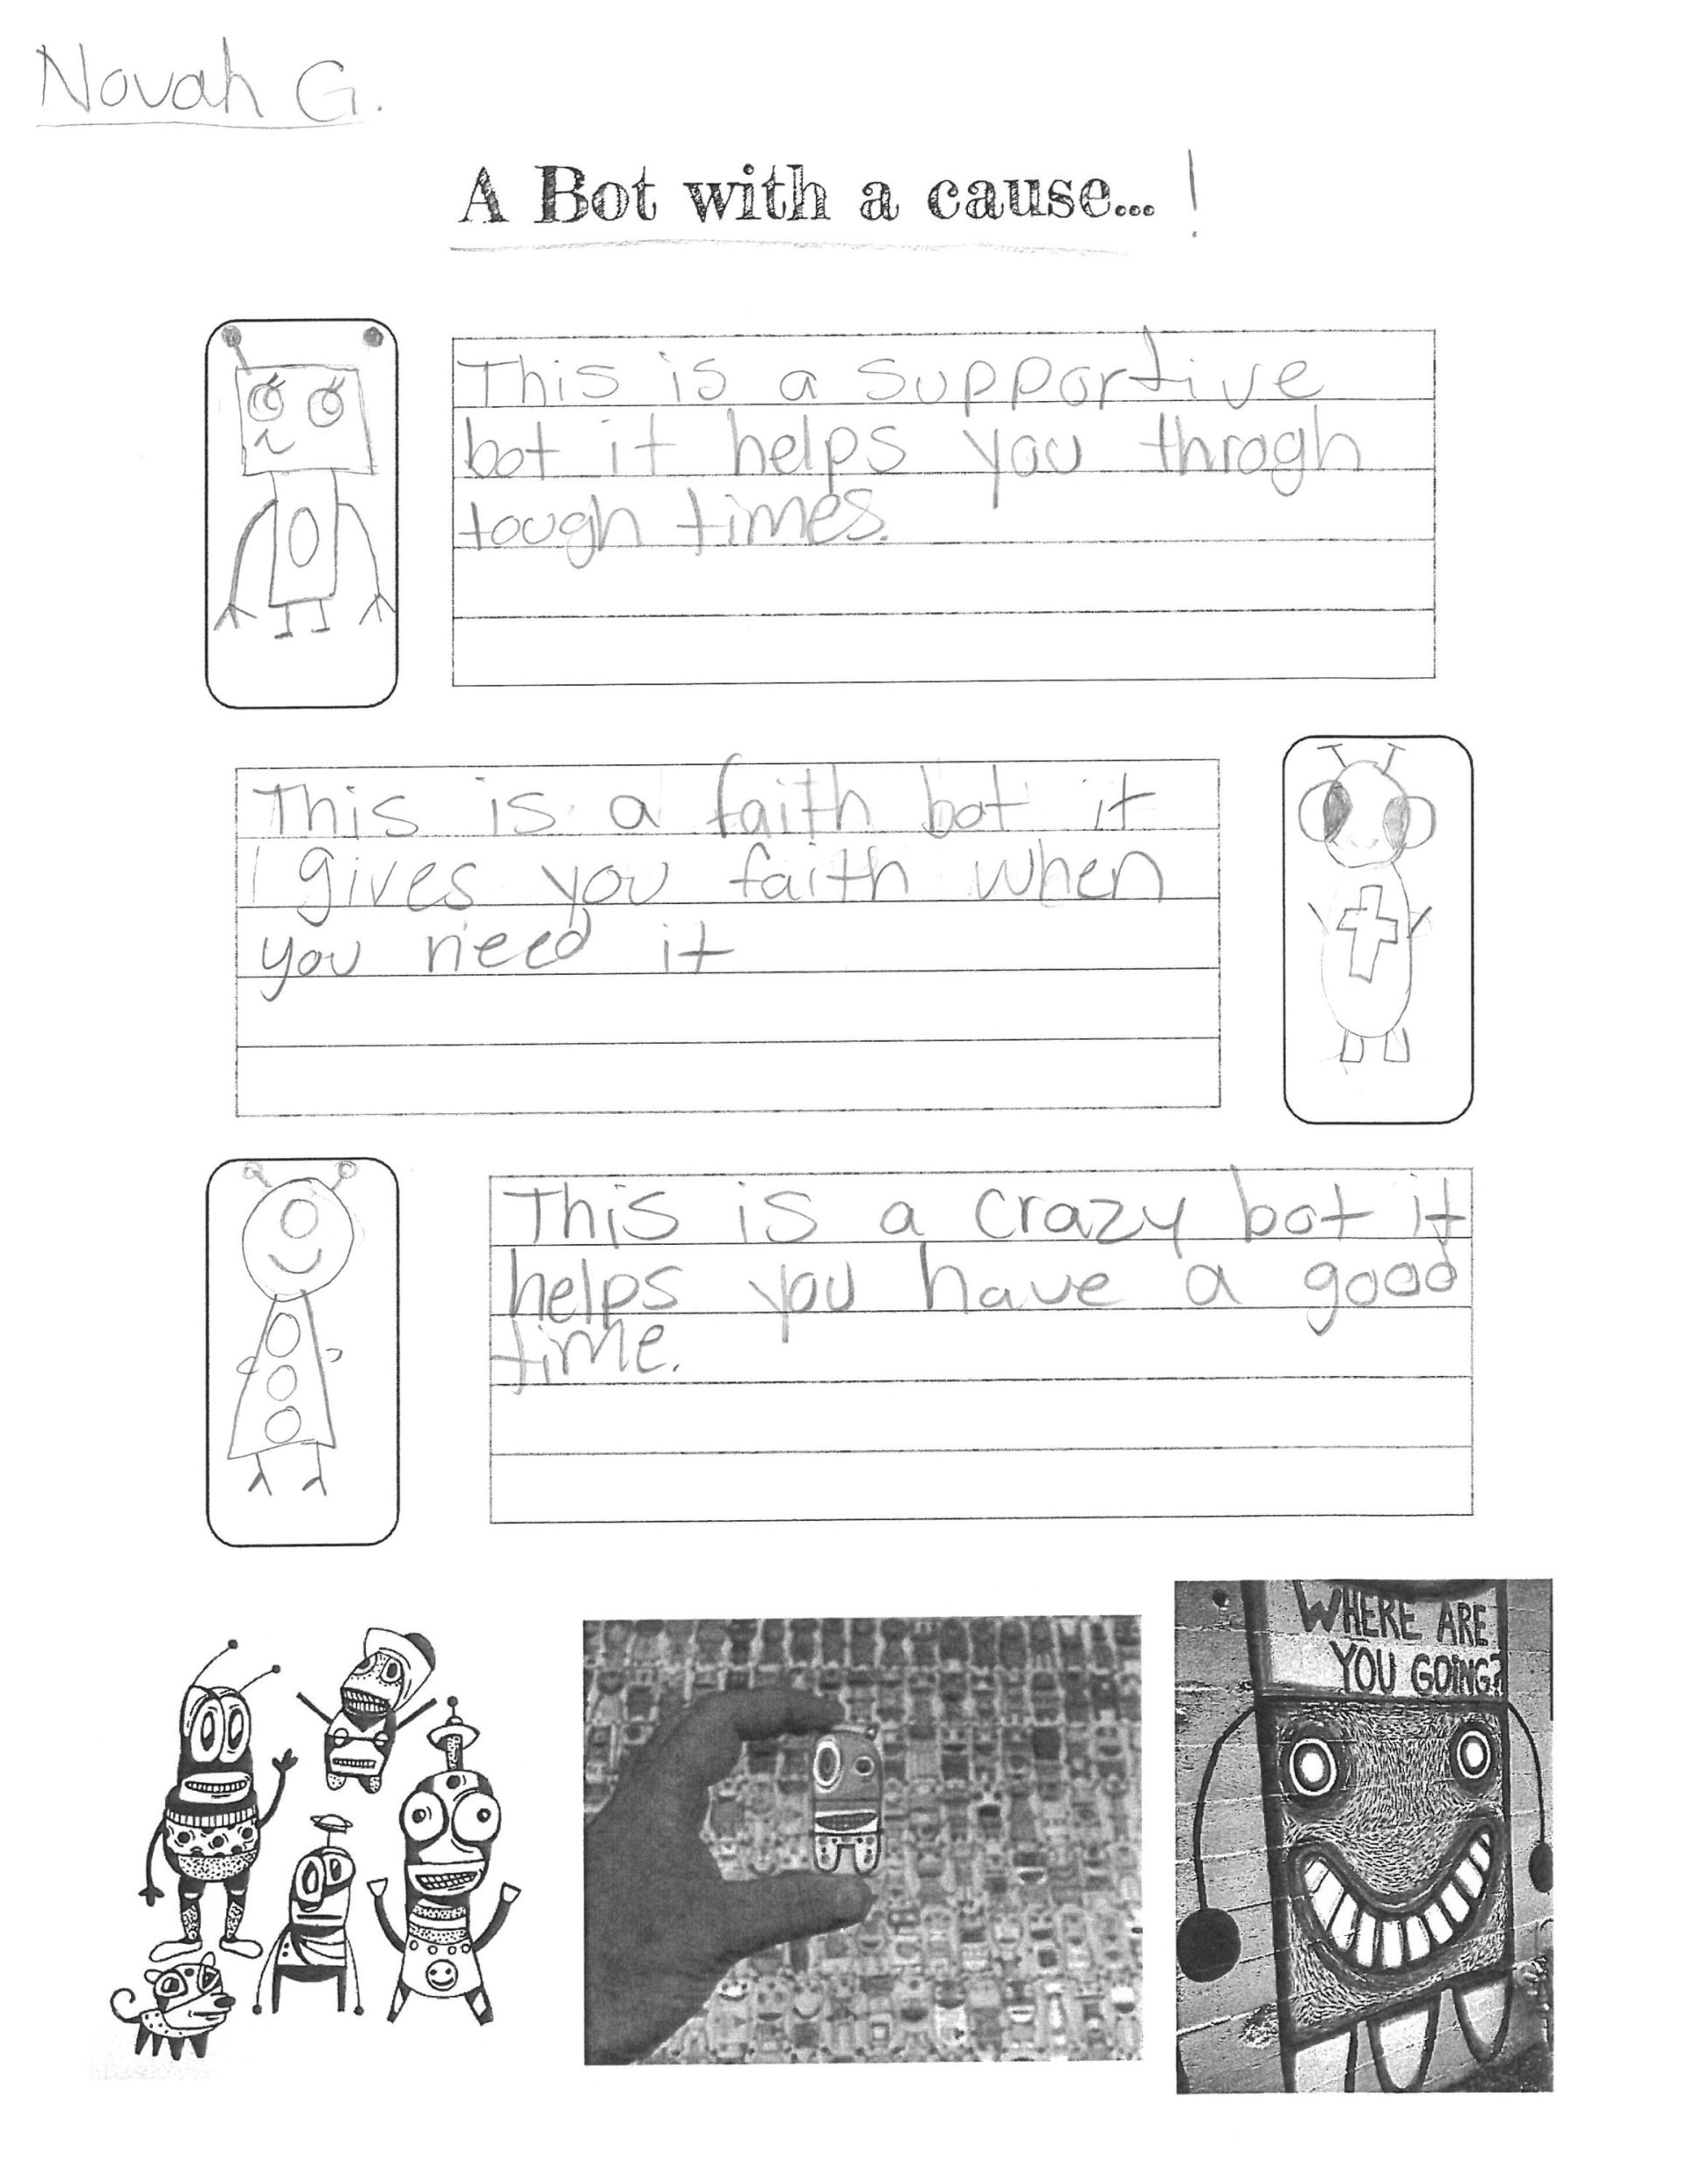 Novah G.
A Bot with a cause... !
This is a supportive
bot it helps you throgh
tough times.
This is a faith bot it
gives you faith when
you need it
This is a crazy bot it
helps you have a good
time.
WHERE ARE
YOU GOING?